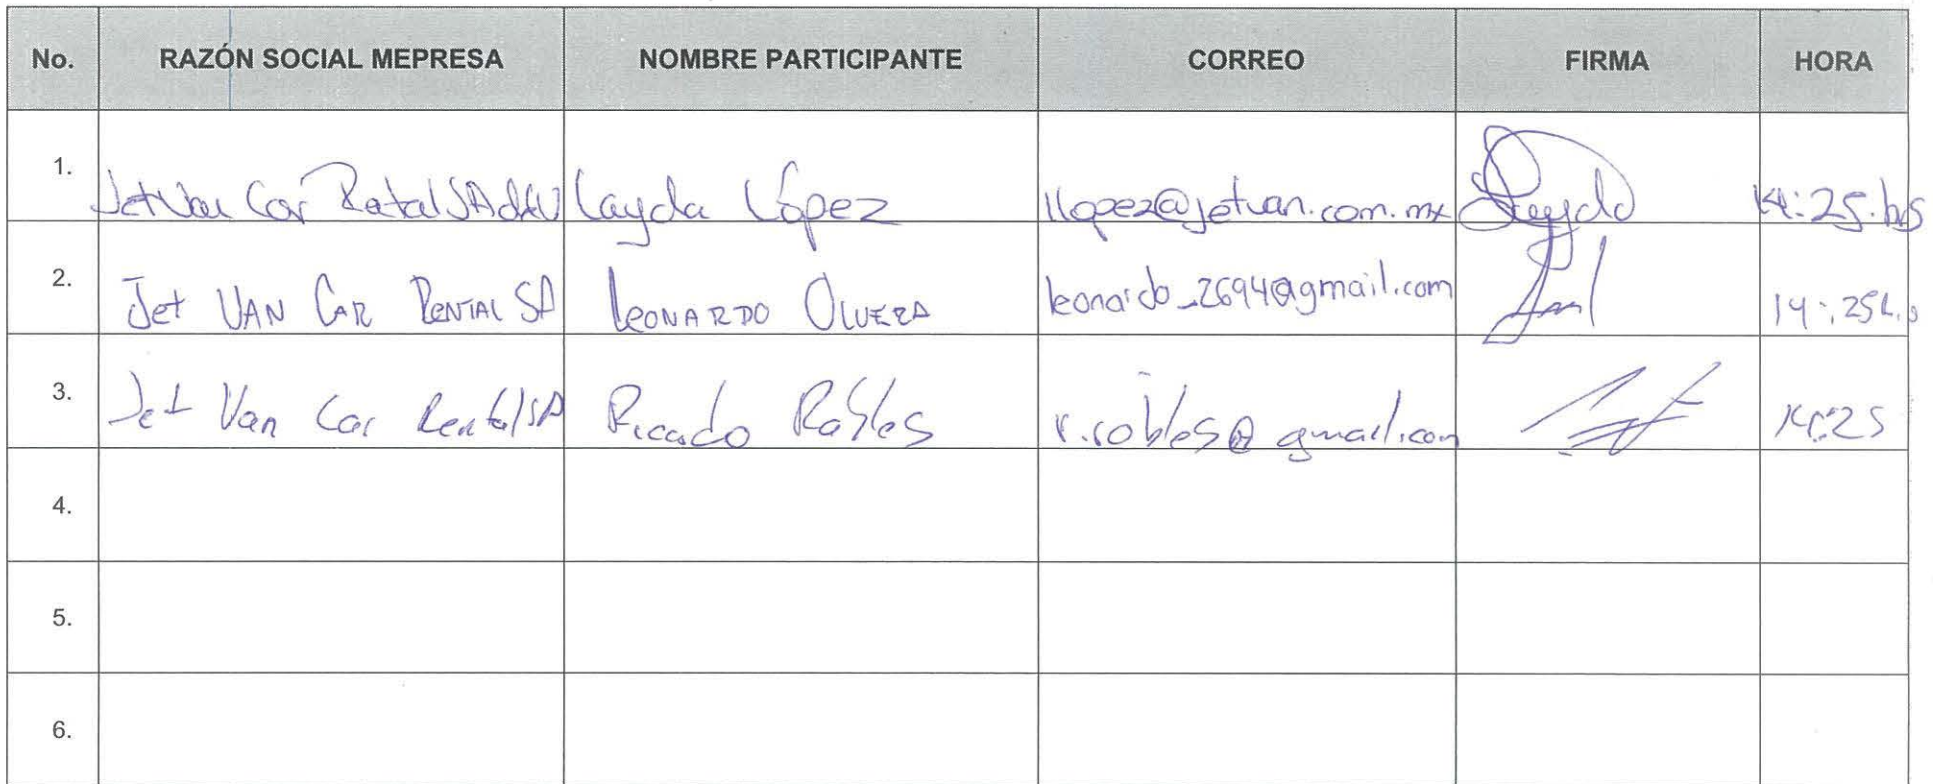 No. RAZÓN SOCIAL MEPRESA NOMBRE PARTICIPANTE CORREO FIRMA HORA
1. Jet Van Car Retal SA de CV Layda López llopez@jetvan.com.mx Layda 14:25.hrs
2. Jet VAN CAR RENTAL SA LEONARDO OLVERA leonardo_2694@gmail.com 14:25h.s
3. Jet Van Car Rental SA Ricado Robles r.robles@gmail.com 14:25
4.
5.
6.